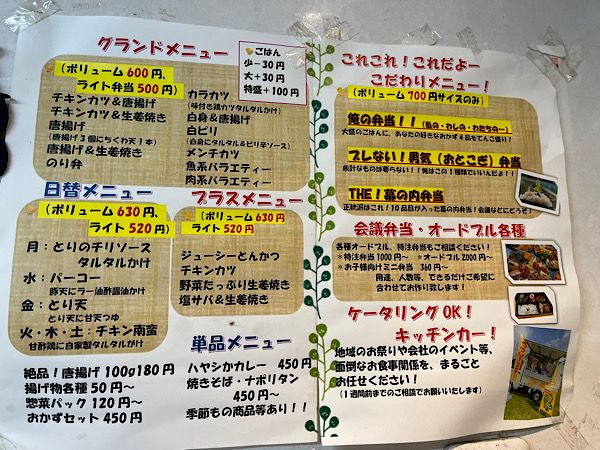 グランドメニュー
ごはん
少－30円
大＋30円
特盛＋100円
（ボリューム600円、
ライト弁当500円）
チキンカツ＆唐揚げ
チキンカツ＆生姜焼き
唐揚げ
（唐揚げ3個にちくわ天1本）
唐揚げ＆生姜焼き
のり弁
カラカツ
（味付き鶏カツタルタルかけ）
白身＆唐揚げ
白ピリ
（白身にタルタル＆ピリ辛ソース）
メンチカツ
魚系バラエティー
肉系バラエティー
日替メニュー
（ボリューム630円、
ライト520円）
月：とりのチリソース
タルタルかけ
水：パーコー
豚天にラー油酢醤油かけ
金：とり天
とり天に甘天つゆ
火・木・土：チキン南蛮
甘酢鶏に自家製タルタルかけ
プラスメニュー
（ボリューム630円
ライト520円）
ジューシーとんかつ
チキンカツ
野菜たっぷり生姜焼き
塩サバ＆生姜焼き
絶品！唐揚げ100g180円
揚げ物各種50円～
惣菜パック120円～
おかずセット450円
単品メニュー
ハヤシかカレー 450円
焼きそば・ナポリタン
450円～
季節もの商品等あり！！
これこれ！これだよー
こだわりメニュー！
（ボリューム700円サイズのみ）
俺の弁当！！（私の・わしの・わたちの…）
大盛のごはんに、あなたの好きなおかず4品をてんこ盛り！
ブレない！男気（おとこぎ）弁当
余計なものは要らない！！俺はこの1種類でいいんだよ！！
THE！幕の内弁当
正統派はこれ！10品目が入った幕の内弁当！会議などにどうぞ！
会議弁当・オードブル各種
各種オードブル、特注弁当もご相談ください！
＊特注弁当1000円～ ＊オードブル2000円～
＊お子様向けミニ弁当 360円～
用途、人数等、できるだけご希望に
合わせてお作り致します！
ケータリングOK！
キッチンカー！
地域のお祭りや会社のイベント等、
面倒なお食事関係を、まるごと
お任せください！
（1週間前までのご相談でお願いいたします）